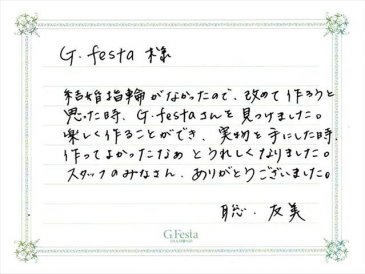 G.festa 様
結婚指輪がなかったので、改めて作ろうと
思った時、G.festaさんを見つけました。
楽しく作ることができ、実物を手にした時、
作ってよかったなぁとうれしくなりました。
スタッフのみなさん、ありがとうございました。
聡・友美
G.Festa